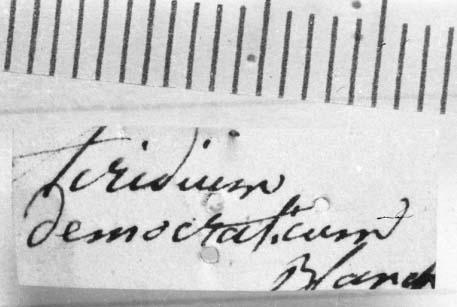 Teridium
democraticum
Blanch